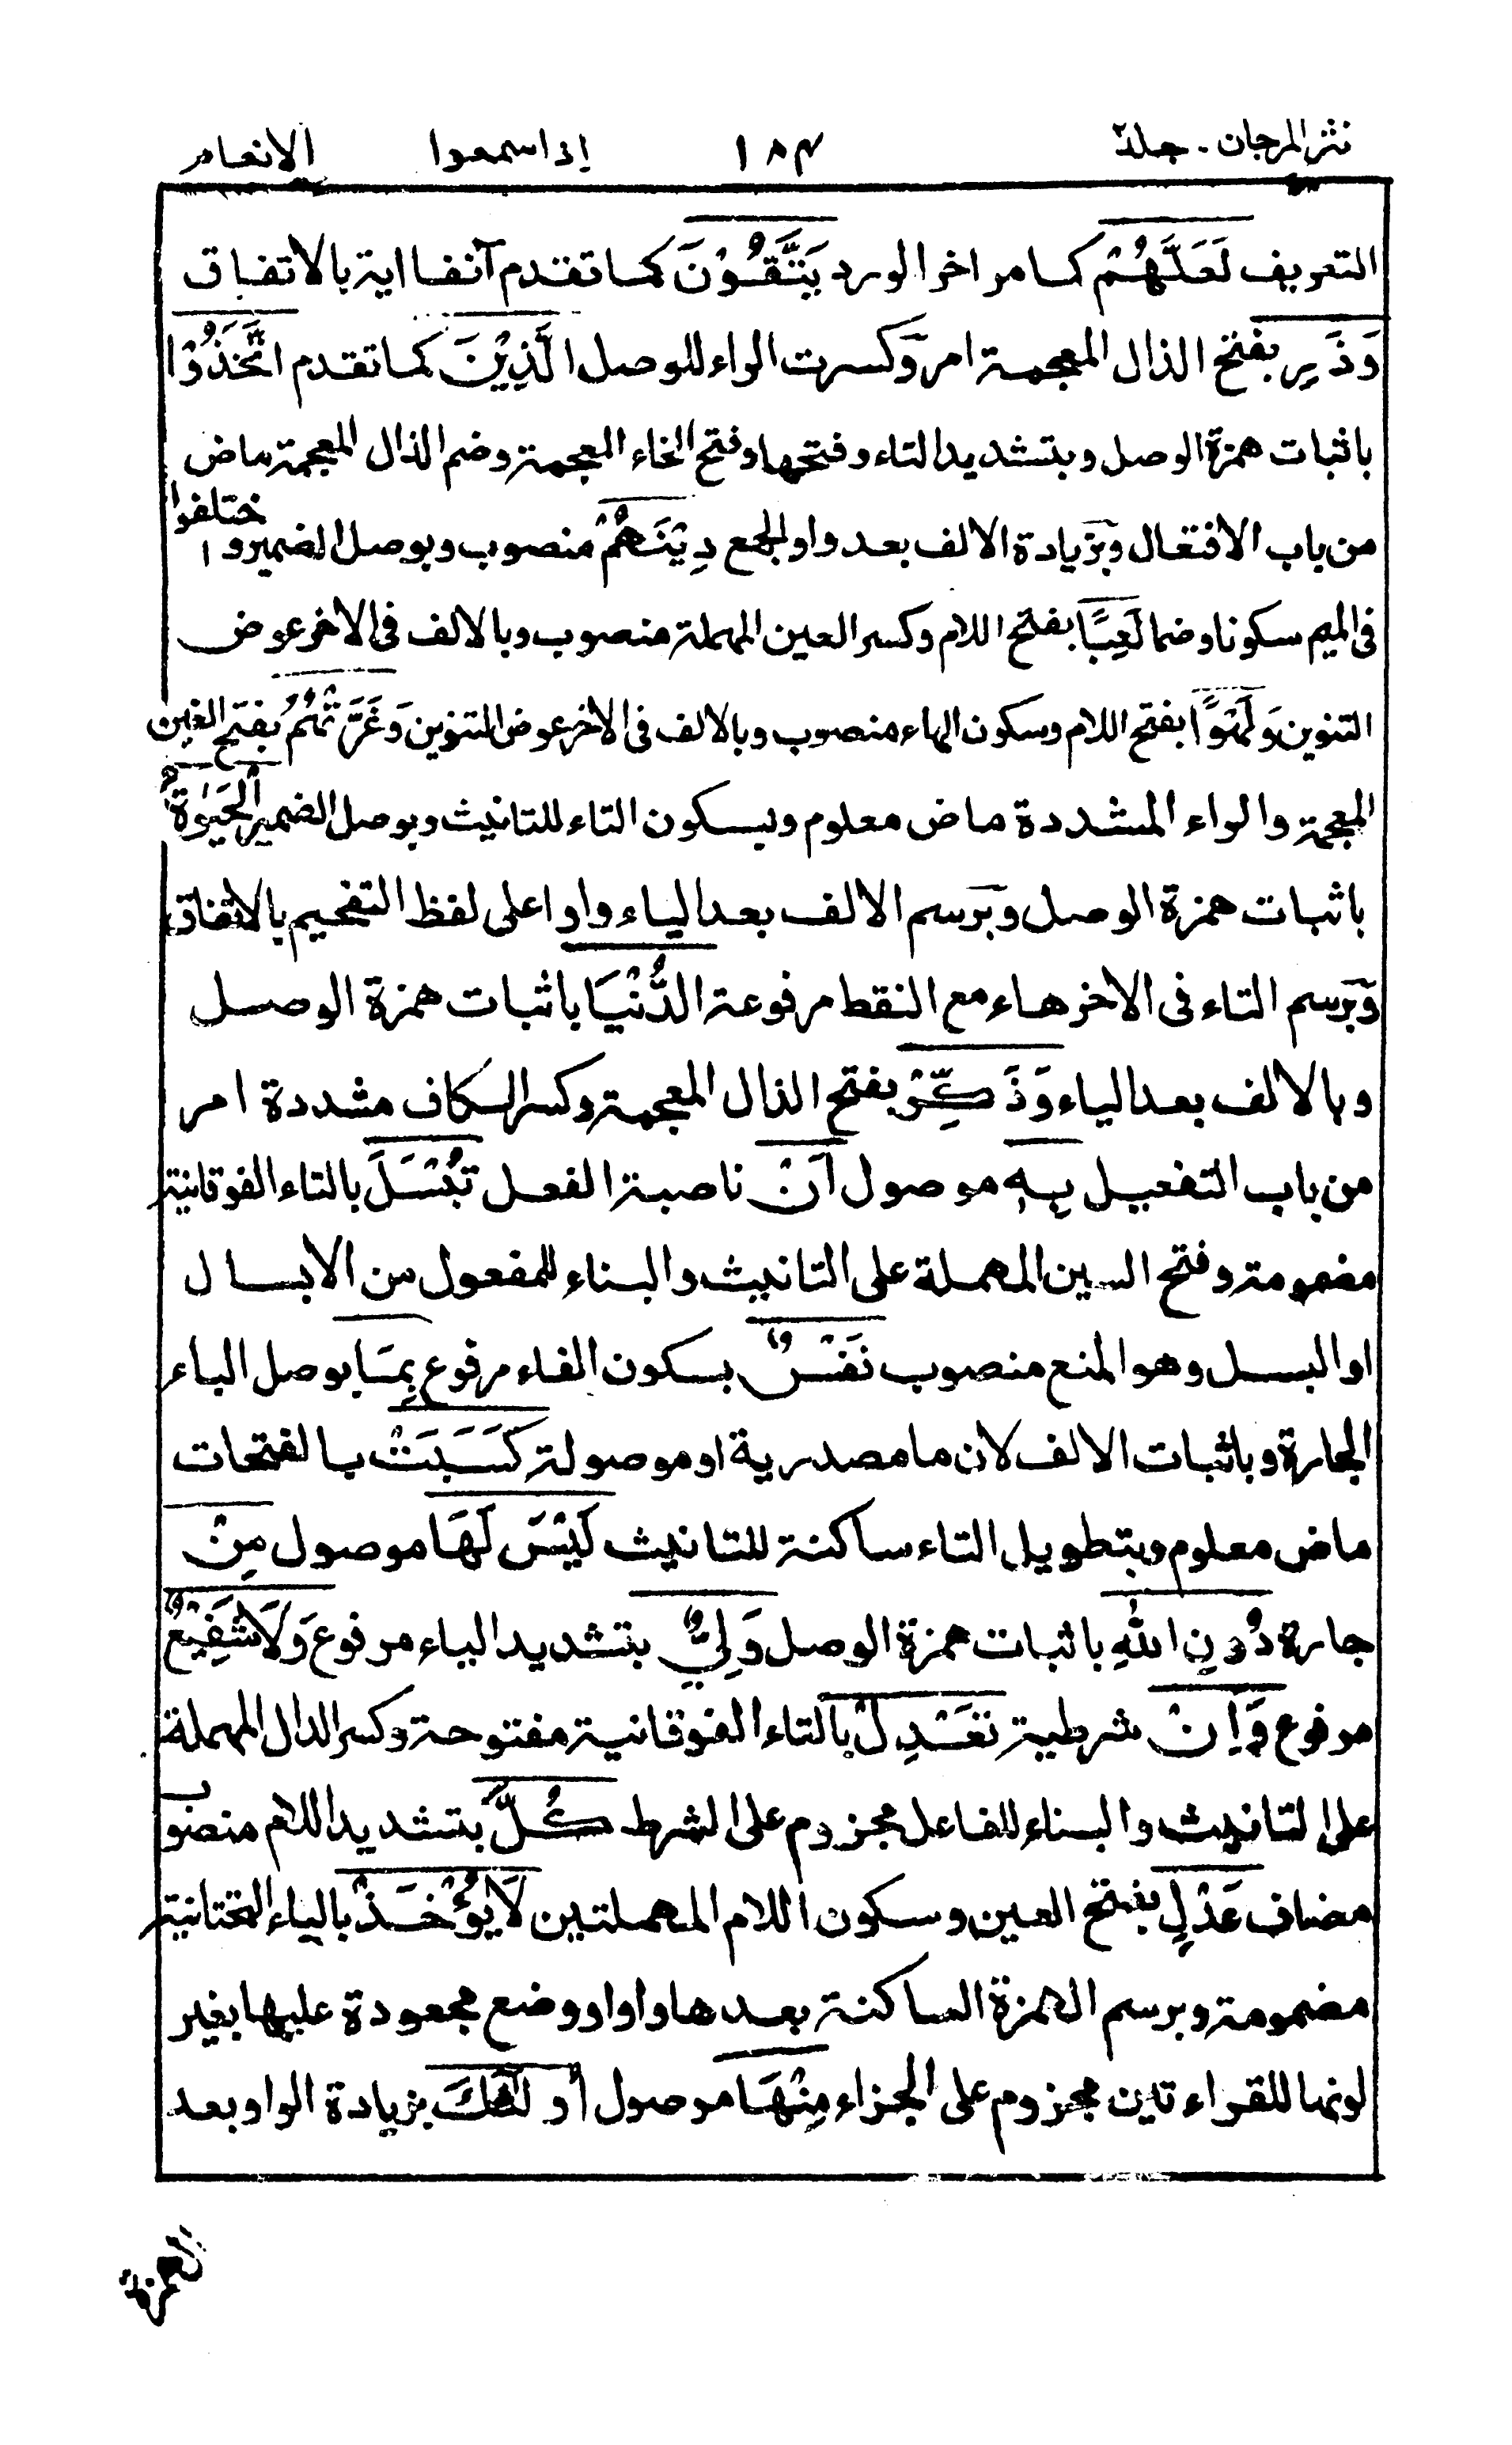 نثر المرجان - جلد٢ ١٨٣ اذا سمعوا الانعام
التعريف لَعَلَّهُمْ كما مر اخر الورد يَتَّقُوْنَ كما تقدم آنفا اية بالاتفاق
وَذَرِ بفتح الذال المعجمة امر وكسرت الراء للوصل الَّذِيْنَ كما تقدم اتَّخَذُوْا
باثبات همزة الوصل وبتشديد التاء وفتحها وفتح الخاء المعجمة وضم الذال المعجمة ماض
من باب الافتعال وبزيادة الالف بعد واو الجمع دِيْنَهُمْ منصوب وبوصل الضمير واختلفوا
فى الميم سكونا وضما لَعِبًا بفتح اللام وكسر العين المهملة منصوب وبالالف فى الاخر عوض
التنوين وَلَهْوًا بفتح اللام وسكون الهاء منصوب وبالالف فى الاخر عوض التنوين وَغَرَّتْهُمُ بفتح الغين
المعجمة والراء المشددة ماض معلوم وبسكون التاء للتانيث وبوصل الضمير الْحَيٰوةُ
باثبات همزة الوصل وبرسم الالف بعد الياء واوا على لفظ التفخيم بالاتفاق
وبرسم التاء فى الاخر هاء مع النقط مرفوعة الدُّنْيَا باثبات همزة الوصل
وبالالف بعد الياء وَذَكِّرْ بفتح الذال المعجمة وكسر الكاف مشددة امر
من باب التفعيل بِهٖ موصول اَنْ ناصبة الفعل تُبْسَلَ بالتاء الفوقانية
مضمومة وفتح السين المهملة على التانيث والبناء للمفعول من الابسال
او البسل وهو المنع منصوب نَفْسٌ بسكون الفاء مرفوع بِمَا بوصل الباء
الجارة وباثبات الالف لان ما مصدرية او موصولة كَسَبَتْ بالفتحات
ماض معلوم وبتطويل التاء ساكنة للتانيث لَيْسَ لَهَا موصول مِنْ
جارة دُوْنِ اللّٰهِ باثبات همزة الوصل وَلِيٌّ بتشديد الياء مرفوع وَلَا شَفِيْعٌ
مرفوع وَاِنْ شرطية تَعْدِلْ بالتاء الفوقانية مفتوحة وكسر الدال المهملة
على التانيث والبناء للفاعل مجزوم على الشرط كُلَّ بتشديد اللام منصوب
مضاف عَدْلٍ بفتح العين وسكون اللام المهملتين لَا يُؤْخَذْ بالياء التحتانية
مضمومة وبرسم الهمزة الساكنة بعدها واوا ووضع مجعودة عليها بغير
لونها للقراءتين مجزوم على الجزاء مِنْهَا موصول اُولٰٓئِكَ بزيادة الواو بعد
الهمزة